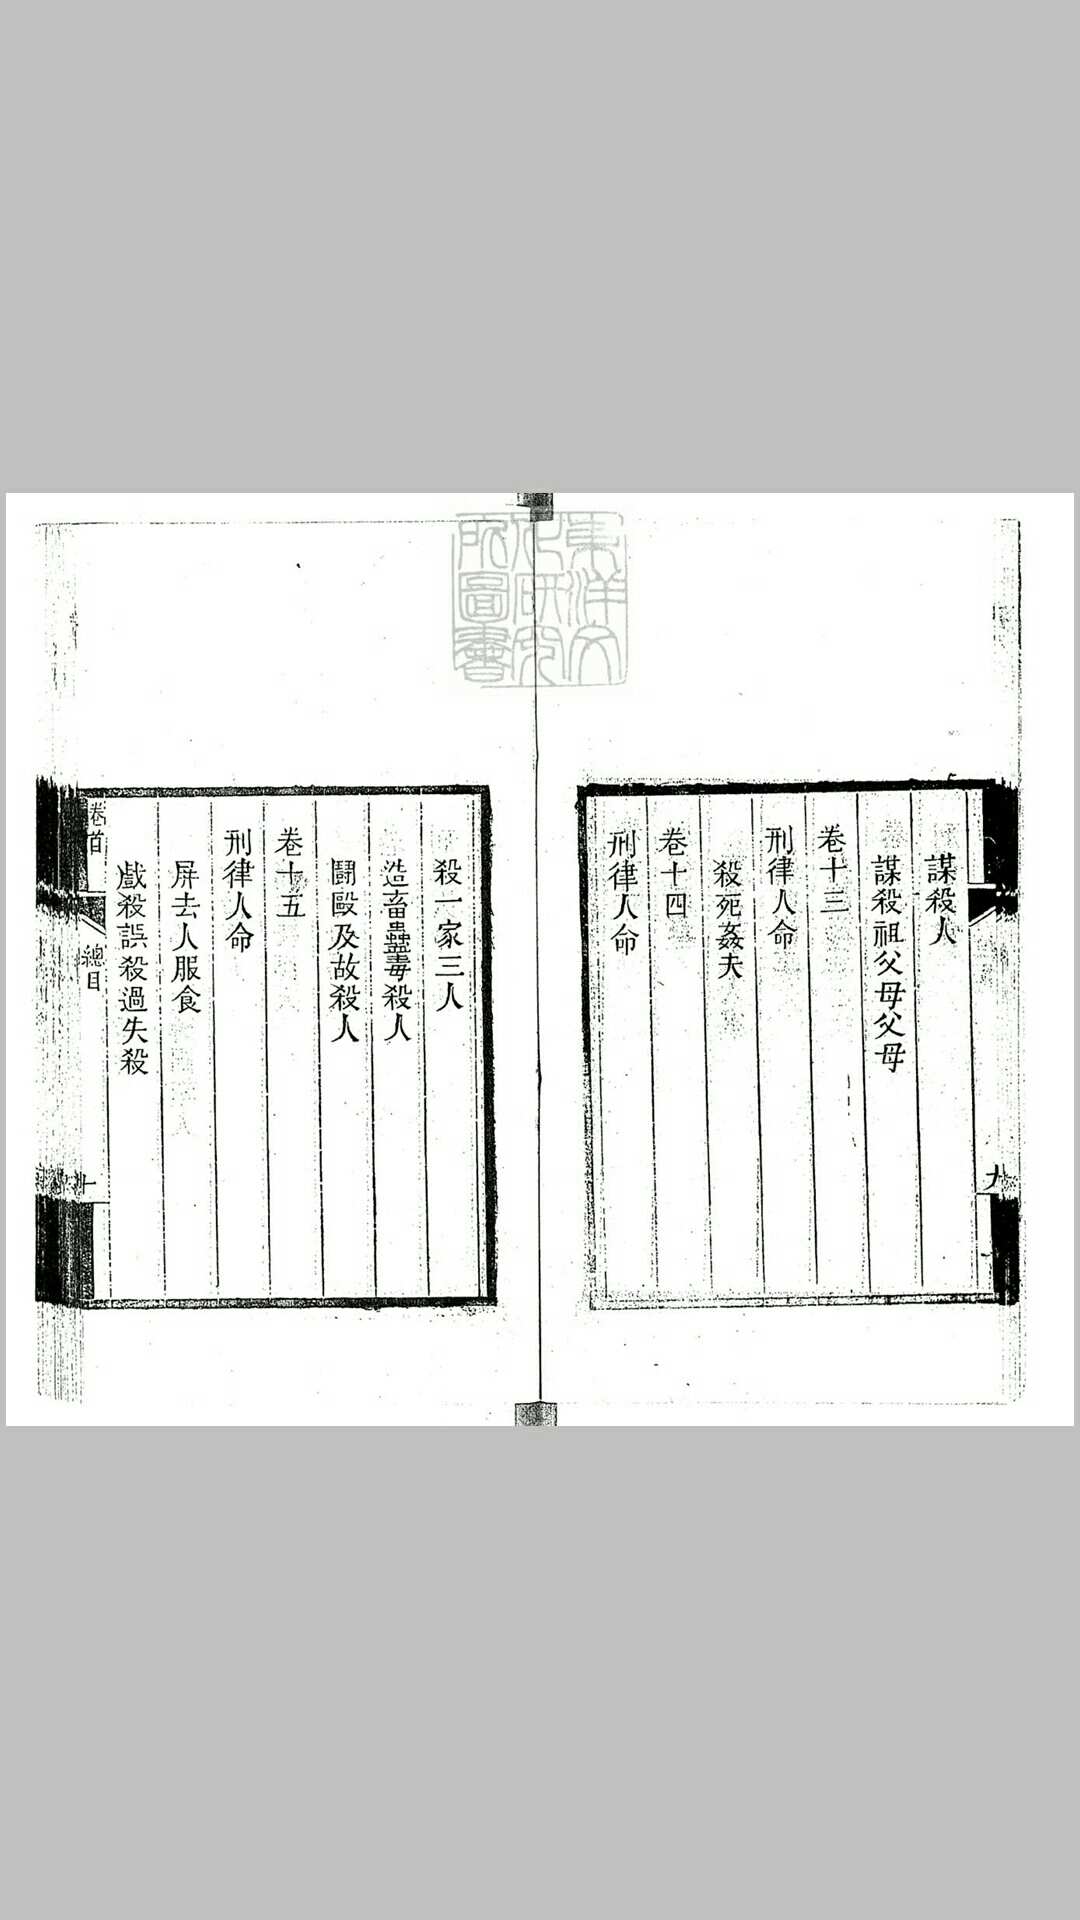 謀殺人
謀殺祖父母父母
卷十三
刑律人命
殺死姦夫
卷十四
刑律人命
九
殺一家三人
造畜蠱毒殺人
鬪毆及故殺人
卷十五
刑律人命
屏去人服食
戲殺誤殺過失殺
卷首
總目
東洋文
化研究
所圖書